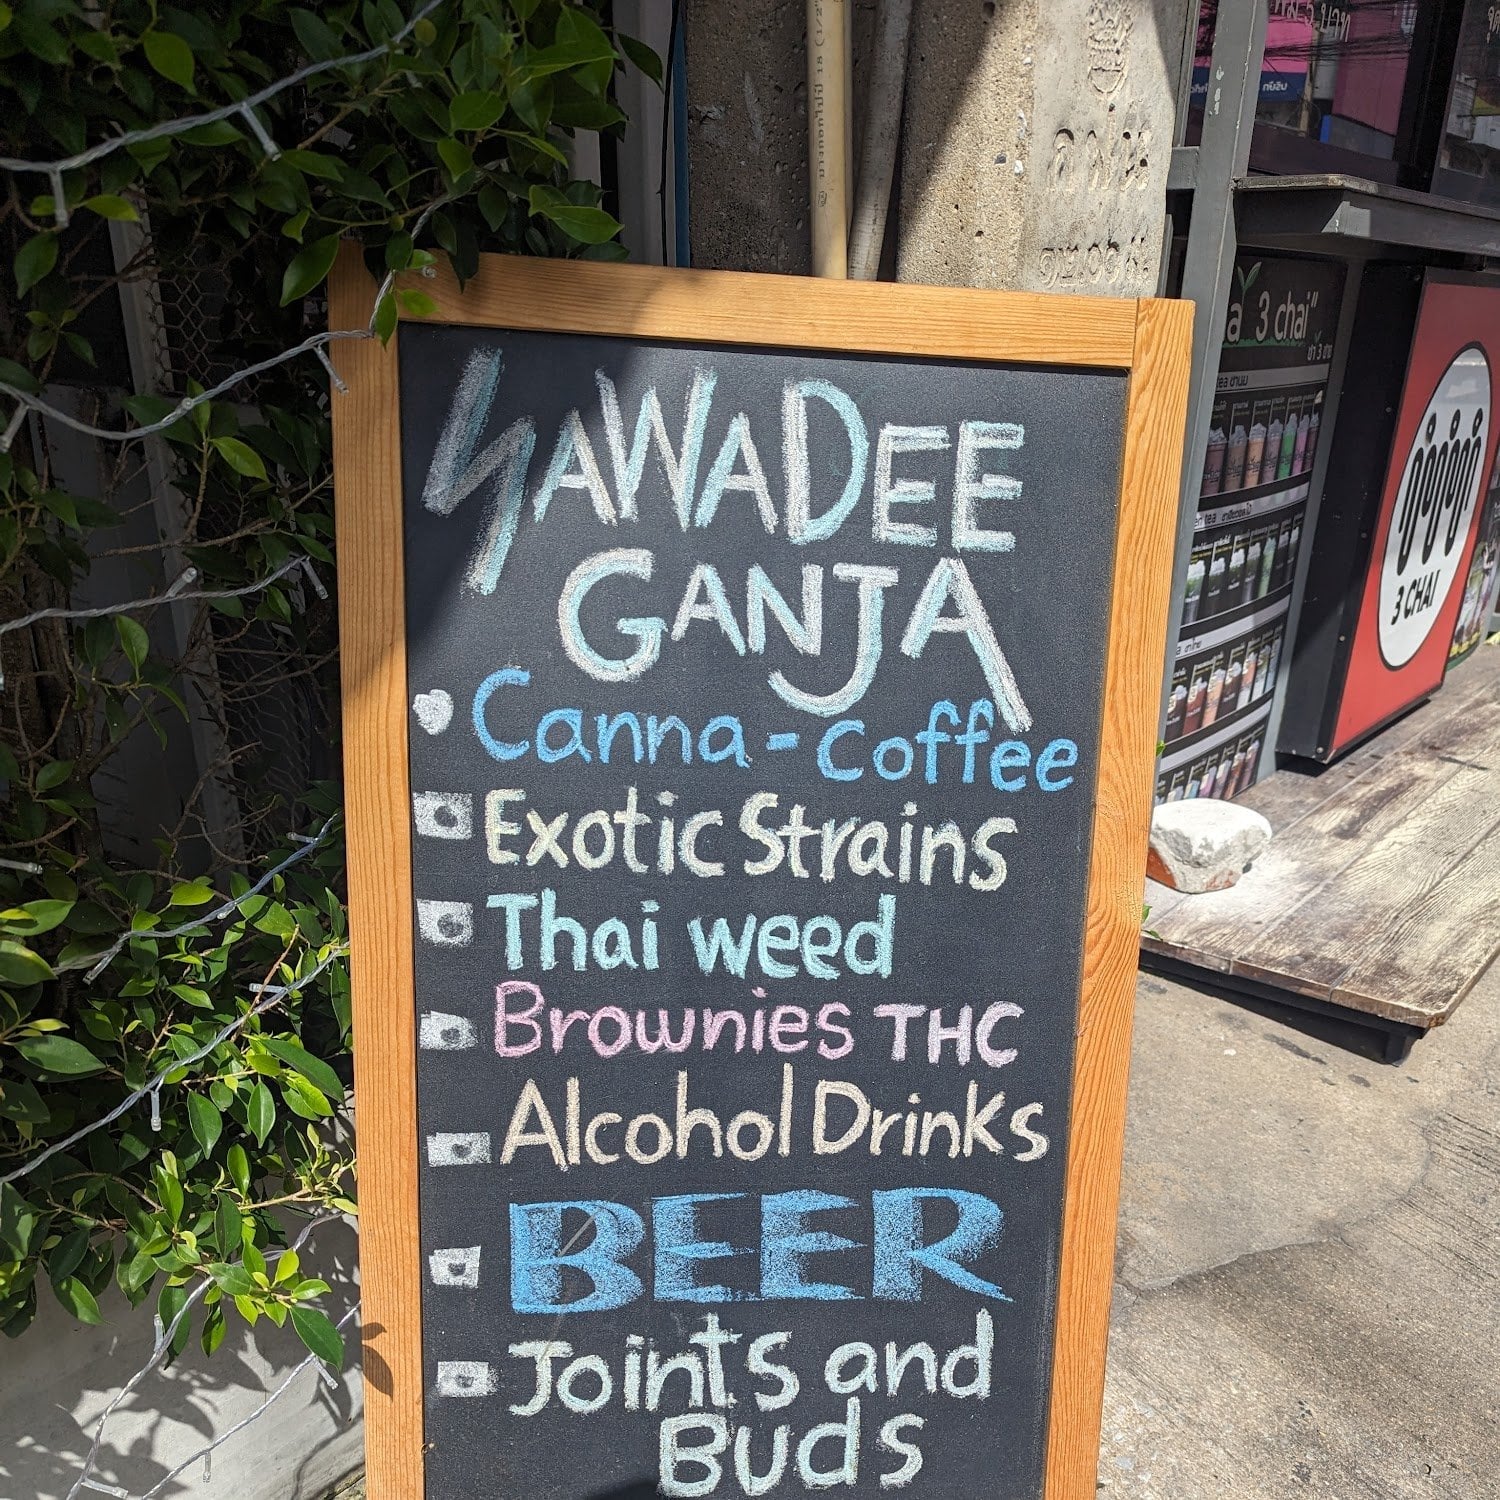 SAWADEE
GANJA
Canna-Coffee
Exotic Strains
Thai weed
Brownies THC
Alcohol Drinks
BEER
Joints and
Buds
3 chai"
ชา 3 ชาย
3 CHAI